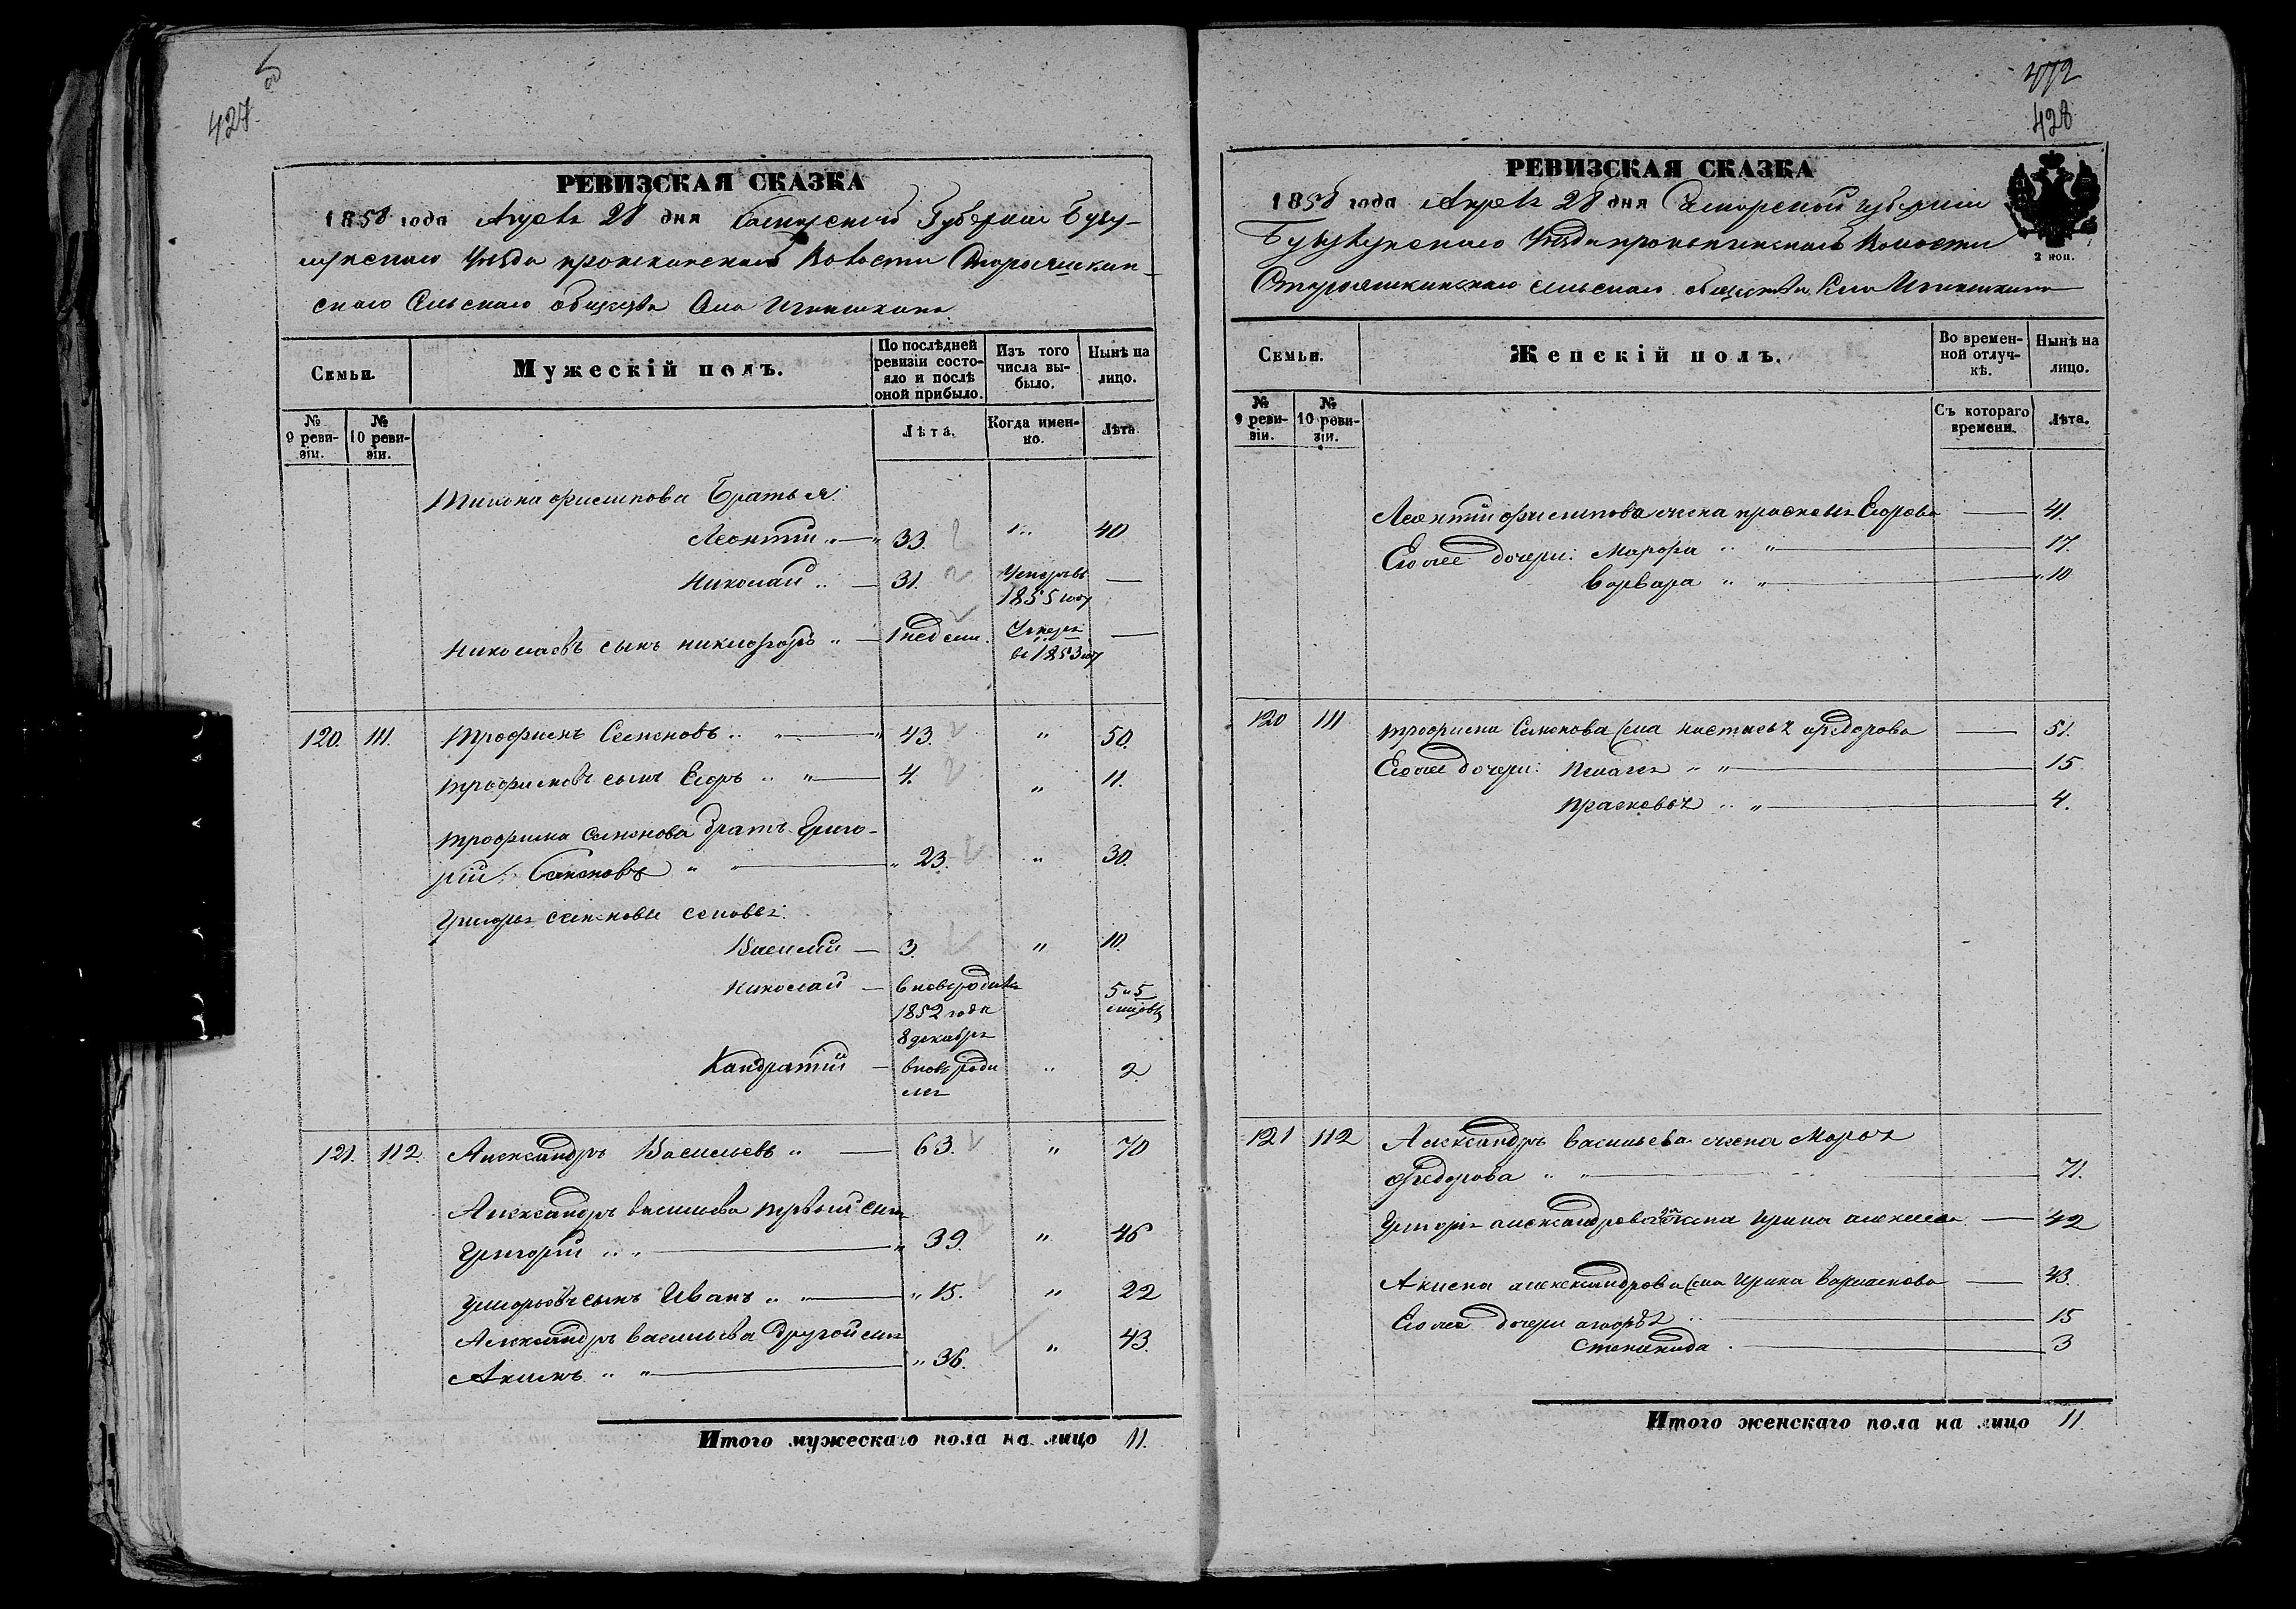 427
об
РЕВИЗСКАЯ СКАЗКА
1858 года Апреля 28 дня Самарской Губернии Бузу-
лукскаго Уезда Волости
скаго Сельскаго общества Села
Семьи.
Мужескій полъ.
По послѣдней ревизіи состо-яло и послѣ оной прибыло.
Изъ того числа вы-было.
Нынѣ на лицо.
№ 9 реви-зіи.
№ 10 реви-зіи.
Лѣта.
Когда имен-но.
Лѣта.
Филипова Братья:
Леонтий 33. 40
Николай 31. Умеръ въ 1855 году —
Николаевъ сынъ никифоръ 1 недели. Умеръ въ 1853 году —
120. 111. Трофимъ Семеновъ 43. " 50.
трофимовъ сынъ Егоръ 4. " 11.
трофима семенова братъ Григо-
рій Семеновъ 23. " 30.
Григорья семенова сыновья:
Василий — 3. " 10.
Николай — вновь родился 1852 года 8 декабря 5 и 5 месяцовъ
Кандратий — вновь родился " 2.
121. 112. Александръ Васильевъ 63. " 70
Александръ васильева первый сынъ
Григорий 39. " 46
Григорьевъ сынъ Иванъ 15. " 22
Александръ васильева другой сынъ
Акимъ 36. " 43.
Итого мужескаго пола на лицо 11.
472
428
РЕВИЗСКАЯ СКАЗКА
1858 года Апреля 28 дня Самарской губернии
Бузулукскаго Уезда Волости
сельскаго общества Села
2 коп.
Семьи.
Женскій полъ.
Во времен-ной отлуч-кѣ.
Нынѣ на лицо.
№ 9 реви-зіи.
№ 10 реви-зіи.
Съ котораго времени.
Лѣта.
Леонтия филипова жена прасковья Егорова — 41.
Его же дочери: Марфа 17.
Варвара 10
120 111 трофима Семенова жена настасья федорова — 51.
Его же дочери: Пелагея 15
прасковья 4.
121 112 Александръ васильева жена Марья
федорова 71.
Григорья александрова жена Ирина — 42
Акима александрова жена Ирина — 43.
Его же дочери 15
Степанида 3
Итого женскаго пола на лицо 11.